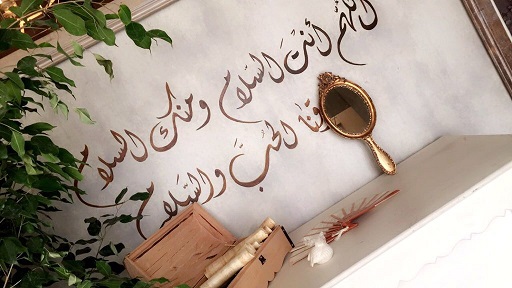 اللهم أنتَ السَلام ومنك السلام
الحُبَّ والسَلام